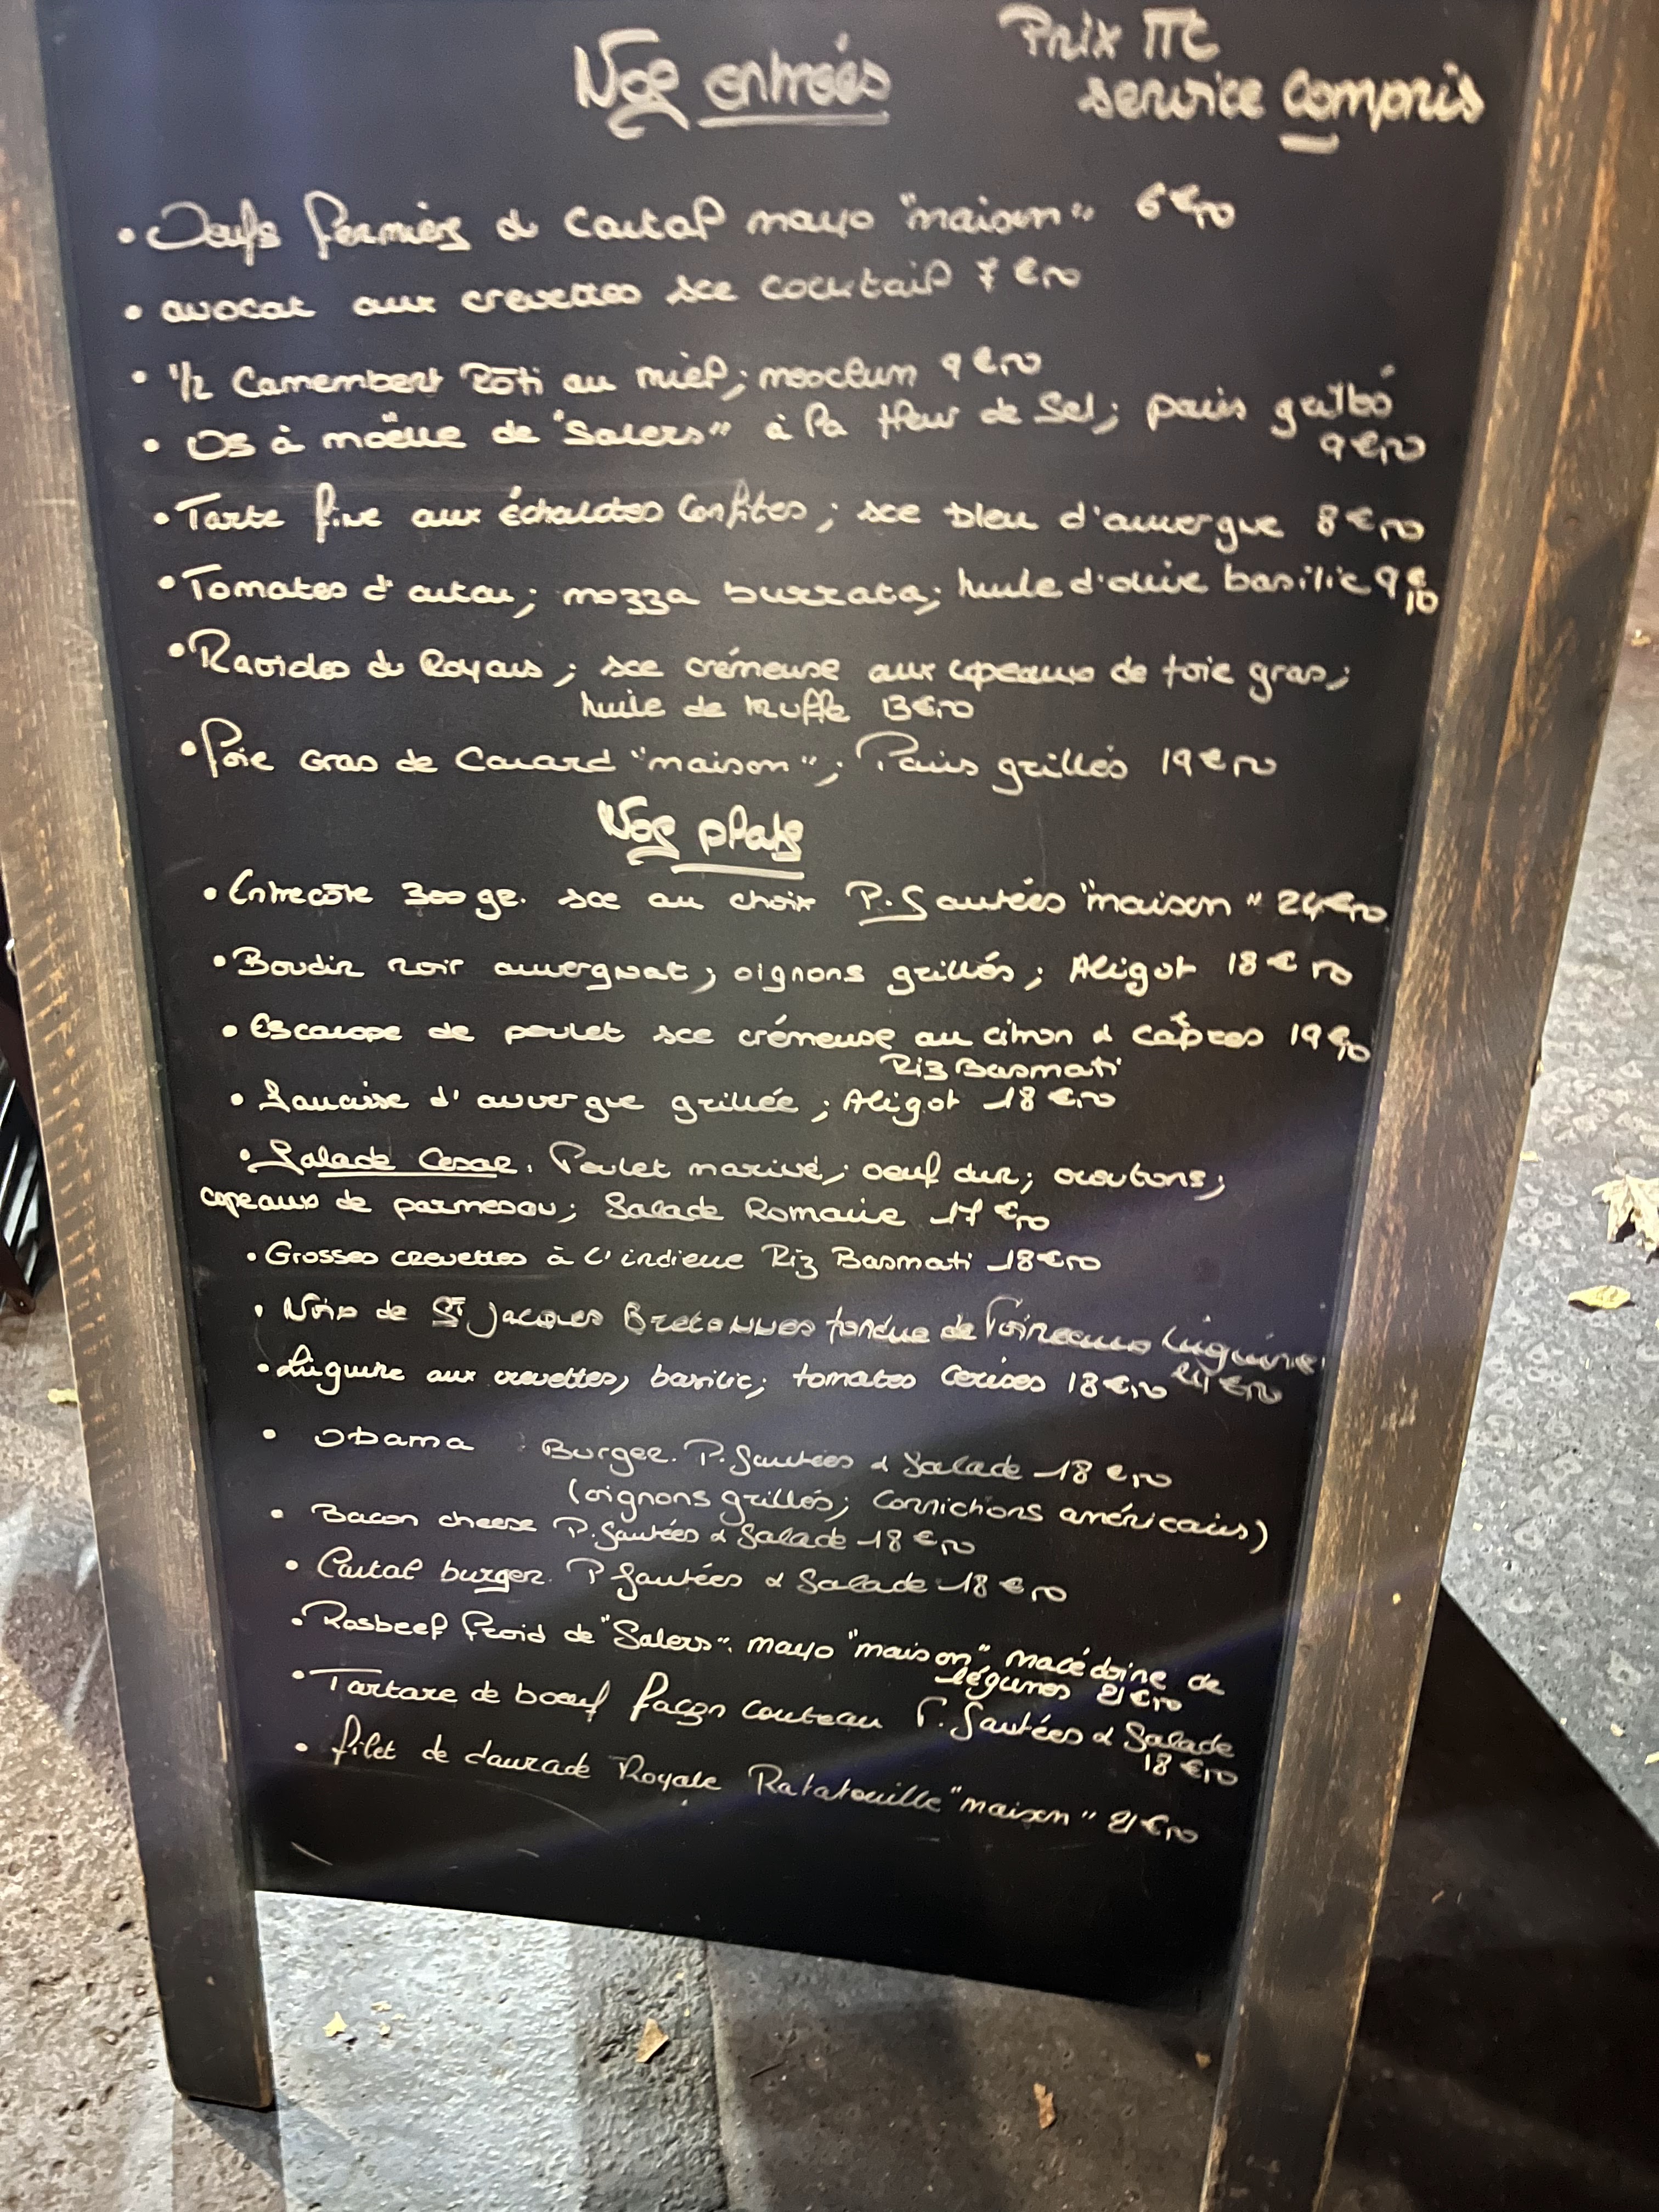 Nos entrées
Prix TTC
service compris
• Oeufs fermiers du Cantal mayo "maison" 6€50
• avocat aux crevettes sce cocktail 7€50
• 1/2 Camembert Rôti au miel; mesclun 9€50
• Os à moëlle de "Salers" à la fleur de Sel; pain grillé
9€50
• Tarte fine aux échalotes Confites; sce bleu d'auvergne 8€50
• Tomates d'antan; mozza burrata; huile d'olive basilic 9€
50
• Ravioles du Royans; sce crémeuse aux copeaux de foie gras;
huile de truffe 13€50
• Foie Gras de Canard "maison"; Pains grillés 19€50
Nos plats
• Entrecôte 300 gr. sce au choix P. Sautées "maison" 24€50
• Boudin noir auvergnat; oignons grillés; Aligot 18€50
• Escalope de poulet sce crémeuse au citron & câpres 19€50
Riz Basmati
• Saucisse d'auvergne grillée; Aligot 18€50
• Salade Cesar. Poulet mariné; oeuf dur; croutons;
copeaux de parmesan; Salade Romaine 17€50
• Grosses crevettes à l'indienne Riz Basmati 18€50
• Noix de St Jacques Bretonnes fondue de Poireaux Linguine
24€50
• Linguine aux crevettes, basilic; tomates Cerises 18€50
• Obama Burger. P. Sautées & Salade 18€50
(oignons grillés; Cornichons américains)
• Bacon cheese P. Sautées & Salade 18€50
• Cantal burger. P Sautées & Salade 18€50
• Rosbeef froid de "Salers". mayo "maison" macédoine de
légumes 21€50
• Tartare de boeuf façon couteau P. Sautées & Salade
18€50
• filet de daurade Royale Ratatouille "maison" 21€50